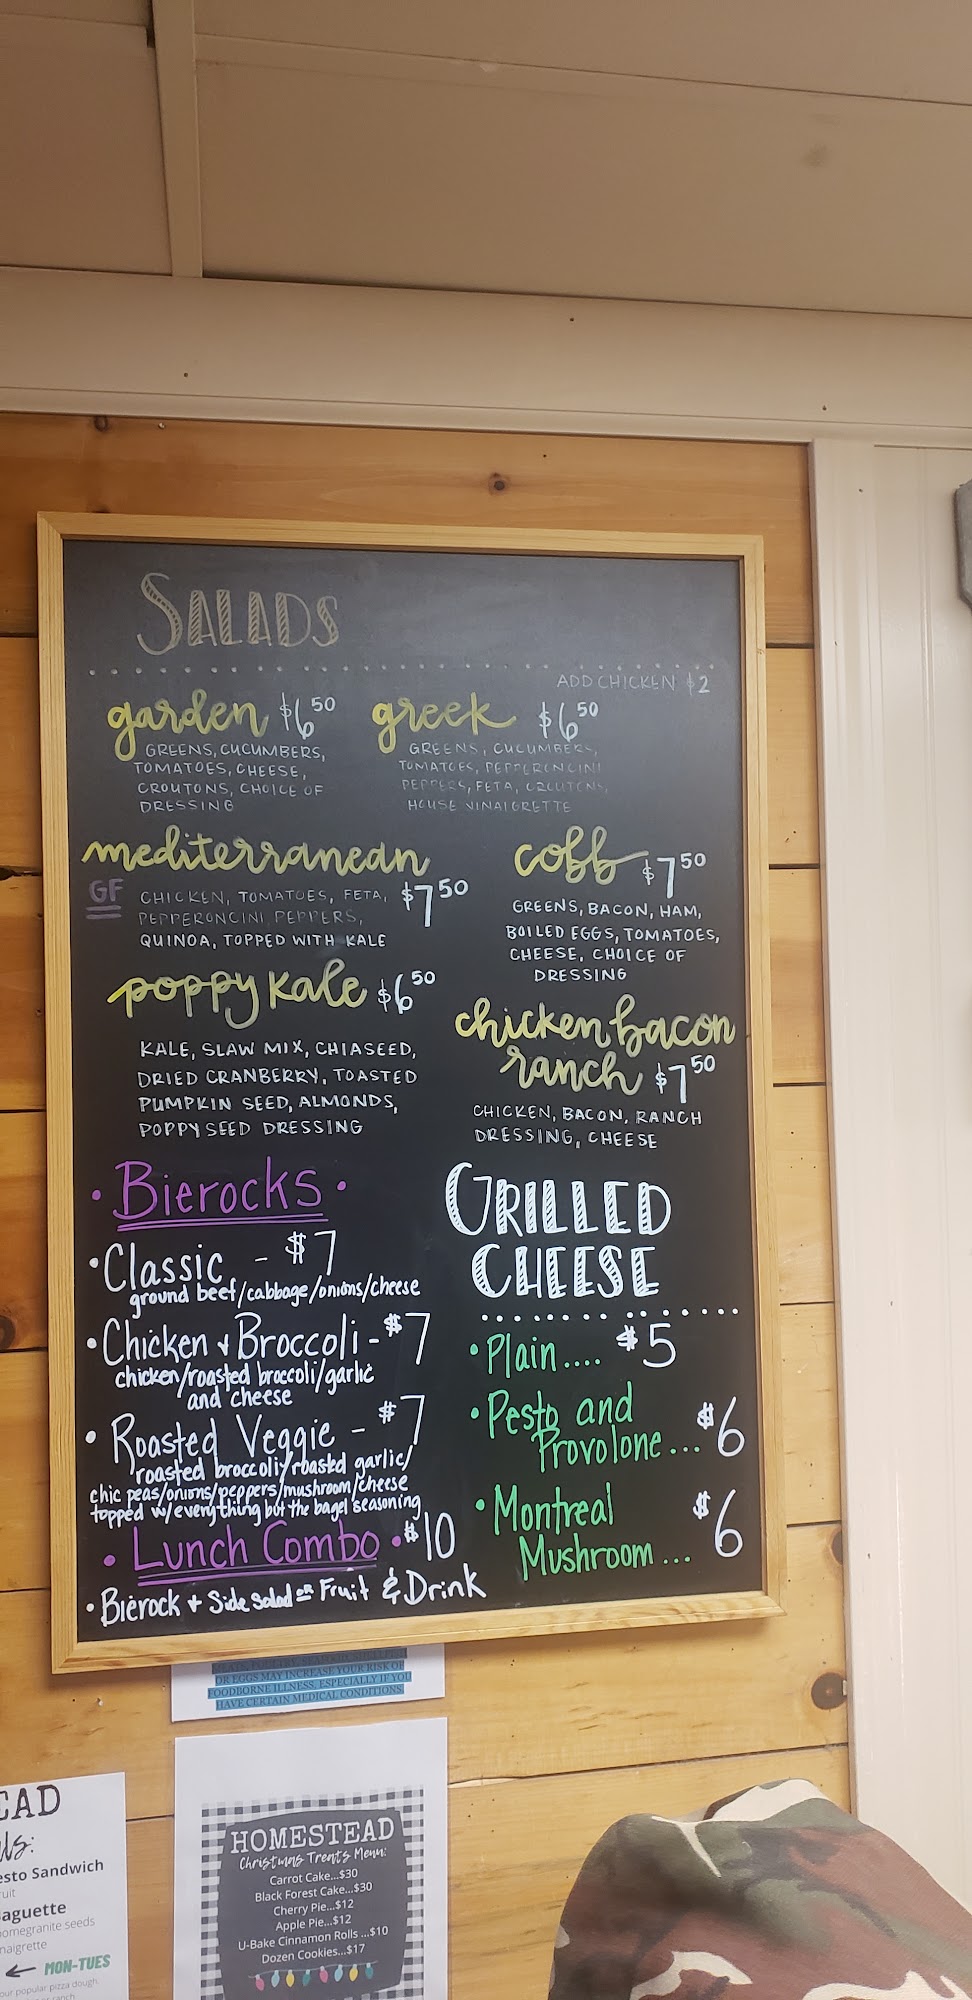 SALADS
ADD CHICKEN $2
garden $6.50
GREENS, CUCUMBERS,
TOMATOES, CHEESE,
CROUTONS, CHOICE OF
DRESSING
greek $6.50
GREENS, CUCUMBERS,
TOMATOES, PEPPERONCINI
PEPPERS, FETA, CROUTONS,
HOUSE VINAIGRETTE
mediterranean
GF CHICKEN, TOMATOES, FETA, $7.50
PEPPERONCINI PEPPERS,
QUINOA, TOPPED WITH KALE
cobb $7.50
GREENS, BACON, HAM,
BOILED EGGS, TOMATOES,
CHEESE, CHOICE OF
DRESSING
poppy kale $6.50
KALE, SLAW MIX, CHIASEED,
DRIED CRANBERRY, TOASTED
PUMPKIN SEED, ALMONDS,
POPPY SEED DRESSING
chicken bacon
ranch $7.50
CHICKEN, BACON, RANCH
DRESSING, CHEESE
• Bierocks •
• Classic - $7
ground beef/cabbage/onions/cheese
• Chicken & Broccoli - $7
chicken/roasted broccoli/garlic
and cheese
• Roasted Veggie - $7
roasted broccoli/roasted garlic/
chic peas/onions/peppers/mushroom/cheese
topped w/everything but the bagel seasoning
• Lunch Combo • $10
• Bierock + Side Salad or Fruit & Drink
GRILLED
CHEESE
• Plain.... $5
• Pesto and
Provolone... $6
• Montreal
Mushroom... $6
OR EGGS MAY INCREASE YOUR RISK OF
FOODBORNE ILLNESS, ESPECIALLY IF YOU
HAVE CERTAIN MEDICAL CONDITIONS.
HOMESTEAD
Christmas Treats Menu:
Carrot Cake...$30
Black Forest Cake...$30
Cherry Pie...$12
Apple Pie...$12
U-Bake Cinnamon Rolls ...$10
Dozen Cookies...$17
EAD
esto Sandwich
ruit
aguette
pomegranite seeds
naigrette
MON-TUES
our popular pizza dough.
ranch